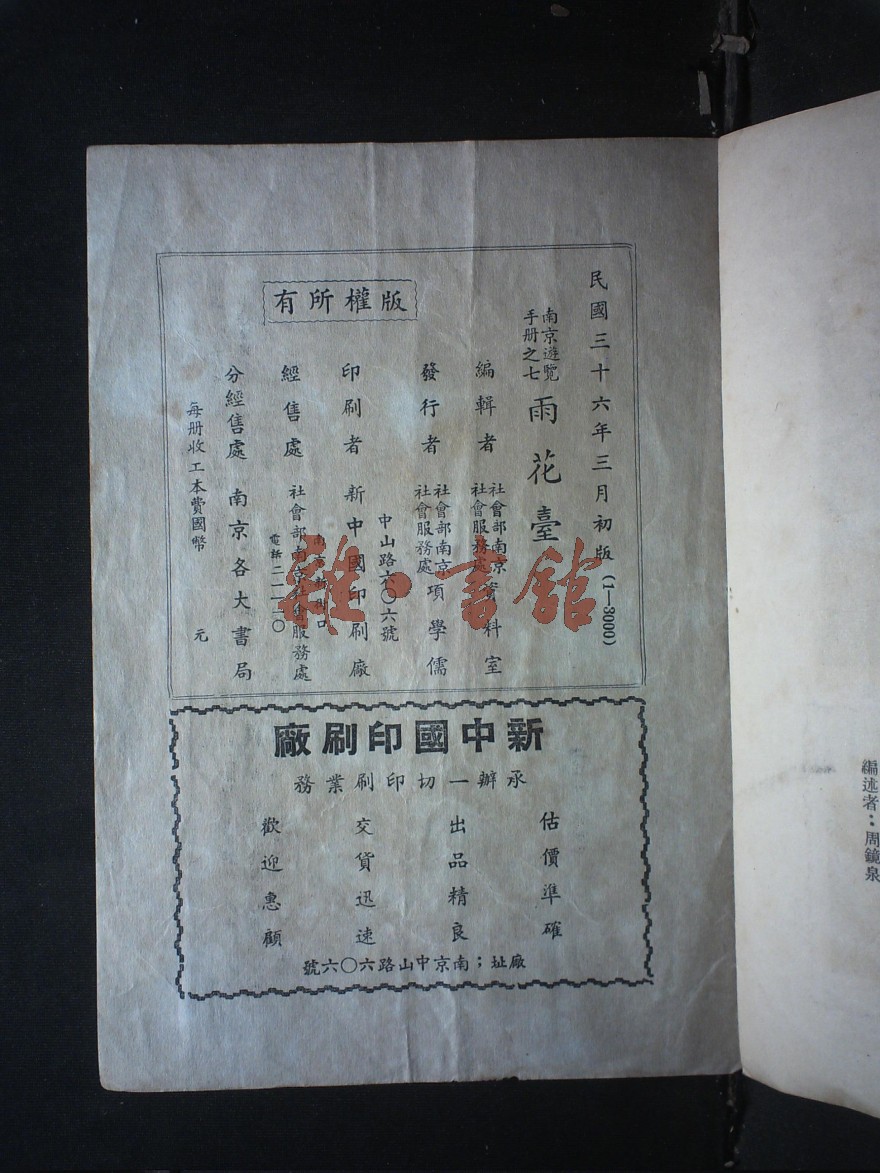 編述者：周鏡泉
民國三十六年三月初版（1—3000）
南京遊覽
手册之七
雨花臺
編輯者
社會部南京
社會服務處
資料室
發行者
社會部南京
社會服務處
項學儒
中山路六〇六號
印刷者 新中國印刷廠
經售處 社會部南京社會服務處
電話二二一二〇
分經售處 南京各大書局
每册收工本費國幣 元
版權所有
雜·書館
新中國印刷廠
承辦一切印刷業務
估價準確
出品精良
交貨迅速
歡迎惠顧
廠址；南京中山路六〇六號